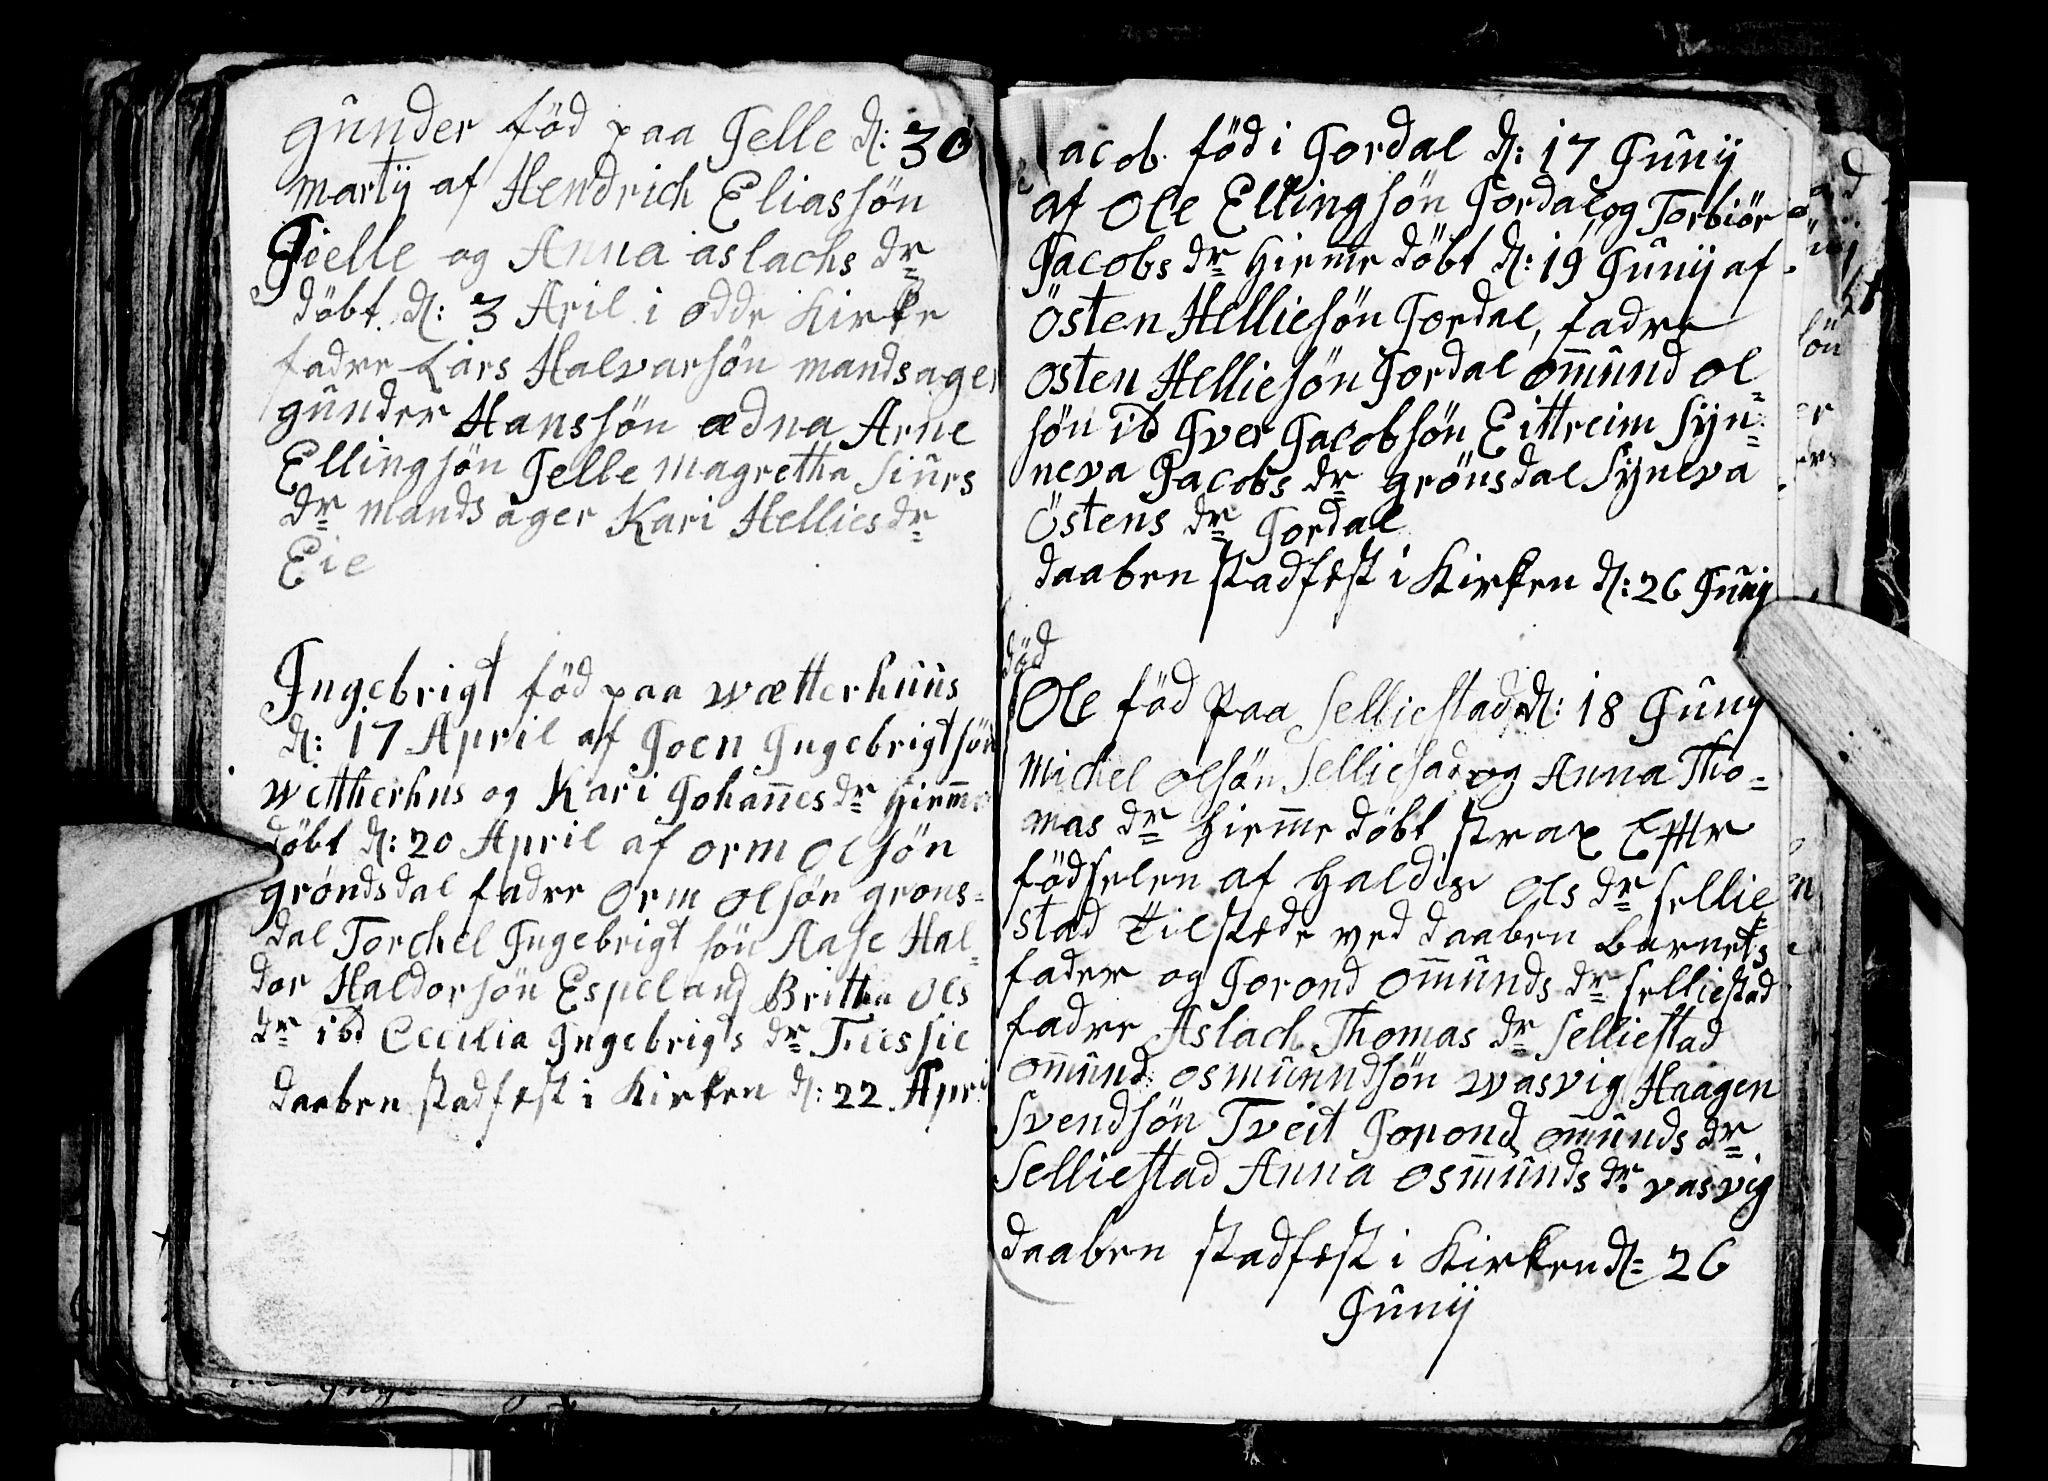 gunder föd paa Jelle d: 30
martÿ af Hendrich Eliassön
Jielle og Anna aslachs dr
döbt d: 3 Aril i odde Kirke
fadre Lars Halvarsön mandsager
gunder Hanssön ædna Arne
Ellingsön Jelle magretha Siurs
dr mandsager Kari Hellies dr
Eie
Ingebrigt föd paa wætterhuus
d: 17 April af Joen Ingebrigtsön
wetherhus og Kari Johan̄es dr Hiem̄e
döbt d: 20 April af orm olsön
gröndsdal fadre Orm olsön grons=
dal Torchel Ingebrigt sön Aase Hal=
dor Haldorsön Espeland Britha ols
dr ibd Cecilia Ingebrigts dr
daaben stadfest i Kirken d: 22 Apri
Jacob föd i Jordal d: 17 Junÿ
af Ole Ellingsön Jordal og Torbiör
Jacobs dr Hiem̄e döbt d: 19 Junÿ af
Östen Helliesön Jordal, fadre
osten Helliesön Jordal om̄und ol=
sön ib Iver Jacobsön Eittreim Syn=
neva Jacobs dr grönsdal Syneva
Östens dr Jordal
daaben stadfest i Kirken d: 26 Junÿ
död
Ole föd paa Selliestad d: 18 Juny
Michel olsön Selliesad og Anna Tho=
mas dr Hiem̄e döbt strax Efttr
födselen af Haldis Ols dr sellie=
stad tilstede ved daaben Barnets
fader og Jorond om̄unds dr selliestad
fadre Aslach Thomas dr Selliestad
om̄und osmunndsön wasvig Haagen
Svendsön Tveit Jorond om̄unds dr
Selliestad Anna osmunds dr vasvig
daaben stadfest i Kirken d= 26
Junÿ